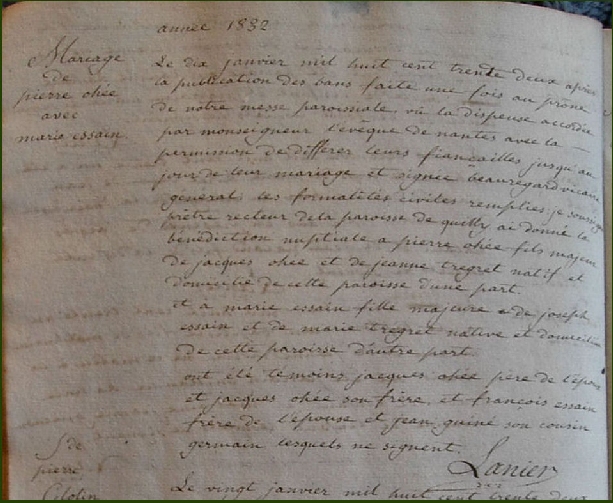 année 1832
Mariage
de
pierre ohée
avec
marie essain
Le dix janvier mil huit cent trente deux après
la publication des bans faite une fois au prône
de notre messe paroissiale, vû la dispense accordée
par monseigneur l'évêque de nantes avec la
permission de différer leurs fiançailles jusqu'au
jour de leur mariage et signée beauregard vicaire
general, les formalités civiles remplies, je soussigné
prêtre recteur de la paroisse de quilly ai donné la
bénédiction nuptiale a pierre ohée fils majeur
de jacques ohée et de jeanne tregret natif et
domicilié de cette paroisse d'une part.
et a marie essain fille majeure de joseph
essain et de marie tregret native et domiciliée
de cette paroisse d'autre part.
ont été temoins jacques ohée père de l'époux
et jacques ohée son frère, et françois essain
frère de l'épouse et jean guiné son cousin
germain lesquels ne signent.
Lanier
S. de
pierre
Le vingt janvier mil huit cent trente deux